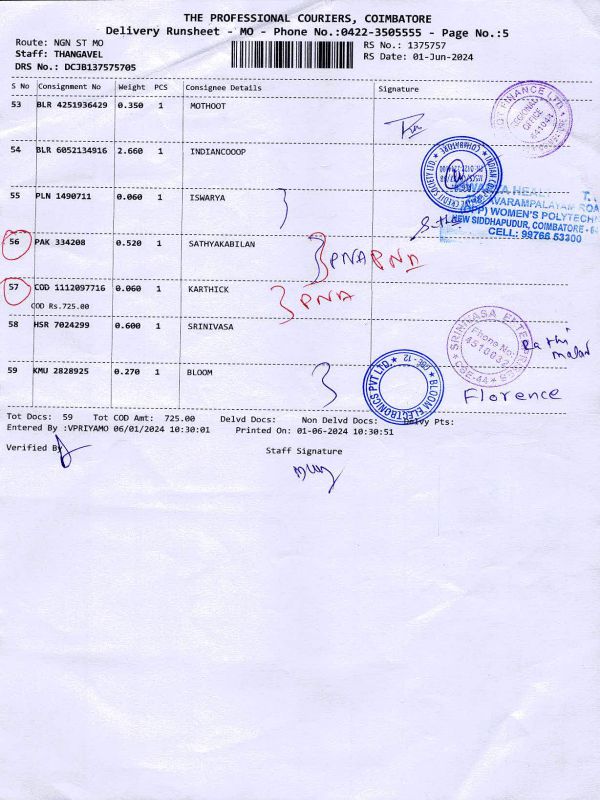 THE PROFESSIONAL COURIERS, COIMBATORE
Delivery Runsheet - MO - Phone No.:0422-3505555 - Page No.:5
Route: NGN ST MO
RS No.: 1375757
Staff: THANGAVEL
RS Date: 01-Jun-2024
DRS No.: DCJB137575705
S No Consignment No Weight PCS Consignee Details Signature
53 BLR 4251936429 0.350 1 MOTHOOT
54 BLR 6052134916 2.660 1 INDIANCOOOP
55 PLN 1490711 0.060 1 ISWARYA
T.
AVARAMPALAYAM ROA
(OPP) WOMEN'S POLYTECHN
NEW SIDDHAPUDUR, COIMBATORE - 64
CELL: 99766 53300
56 PAK 334208 0.520 1 SATHYAKABILAN PNA PNA
57 COD 1112097716 0.060 1 KARTHICK PNA
COD Rs.725.00
58 HSR 7024299 0.600 1 SRINIVASA
SRINIVASA ENTERPRISES
Phone No:
CBE-44
59 KMU 2828925 0.270 1 BLOOM
BLOOM ELECTRONICS PVT LTD. CBE-12
Florence
Tot Docs: 59 Tot COD Amt: 725.00 Delvd Docs: Non Delvd Docs: Delvy Pts:
Entered By :VPRIYAMO 06/01/2024 10:30:01 Printed On: 01-06-2024 10:30:51
Verified By
Staff Signature